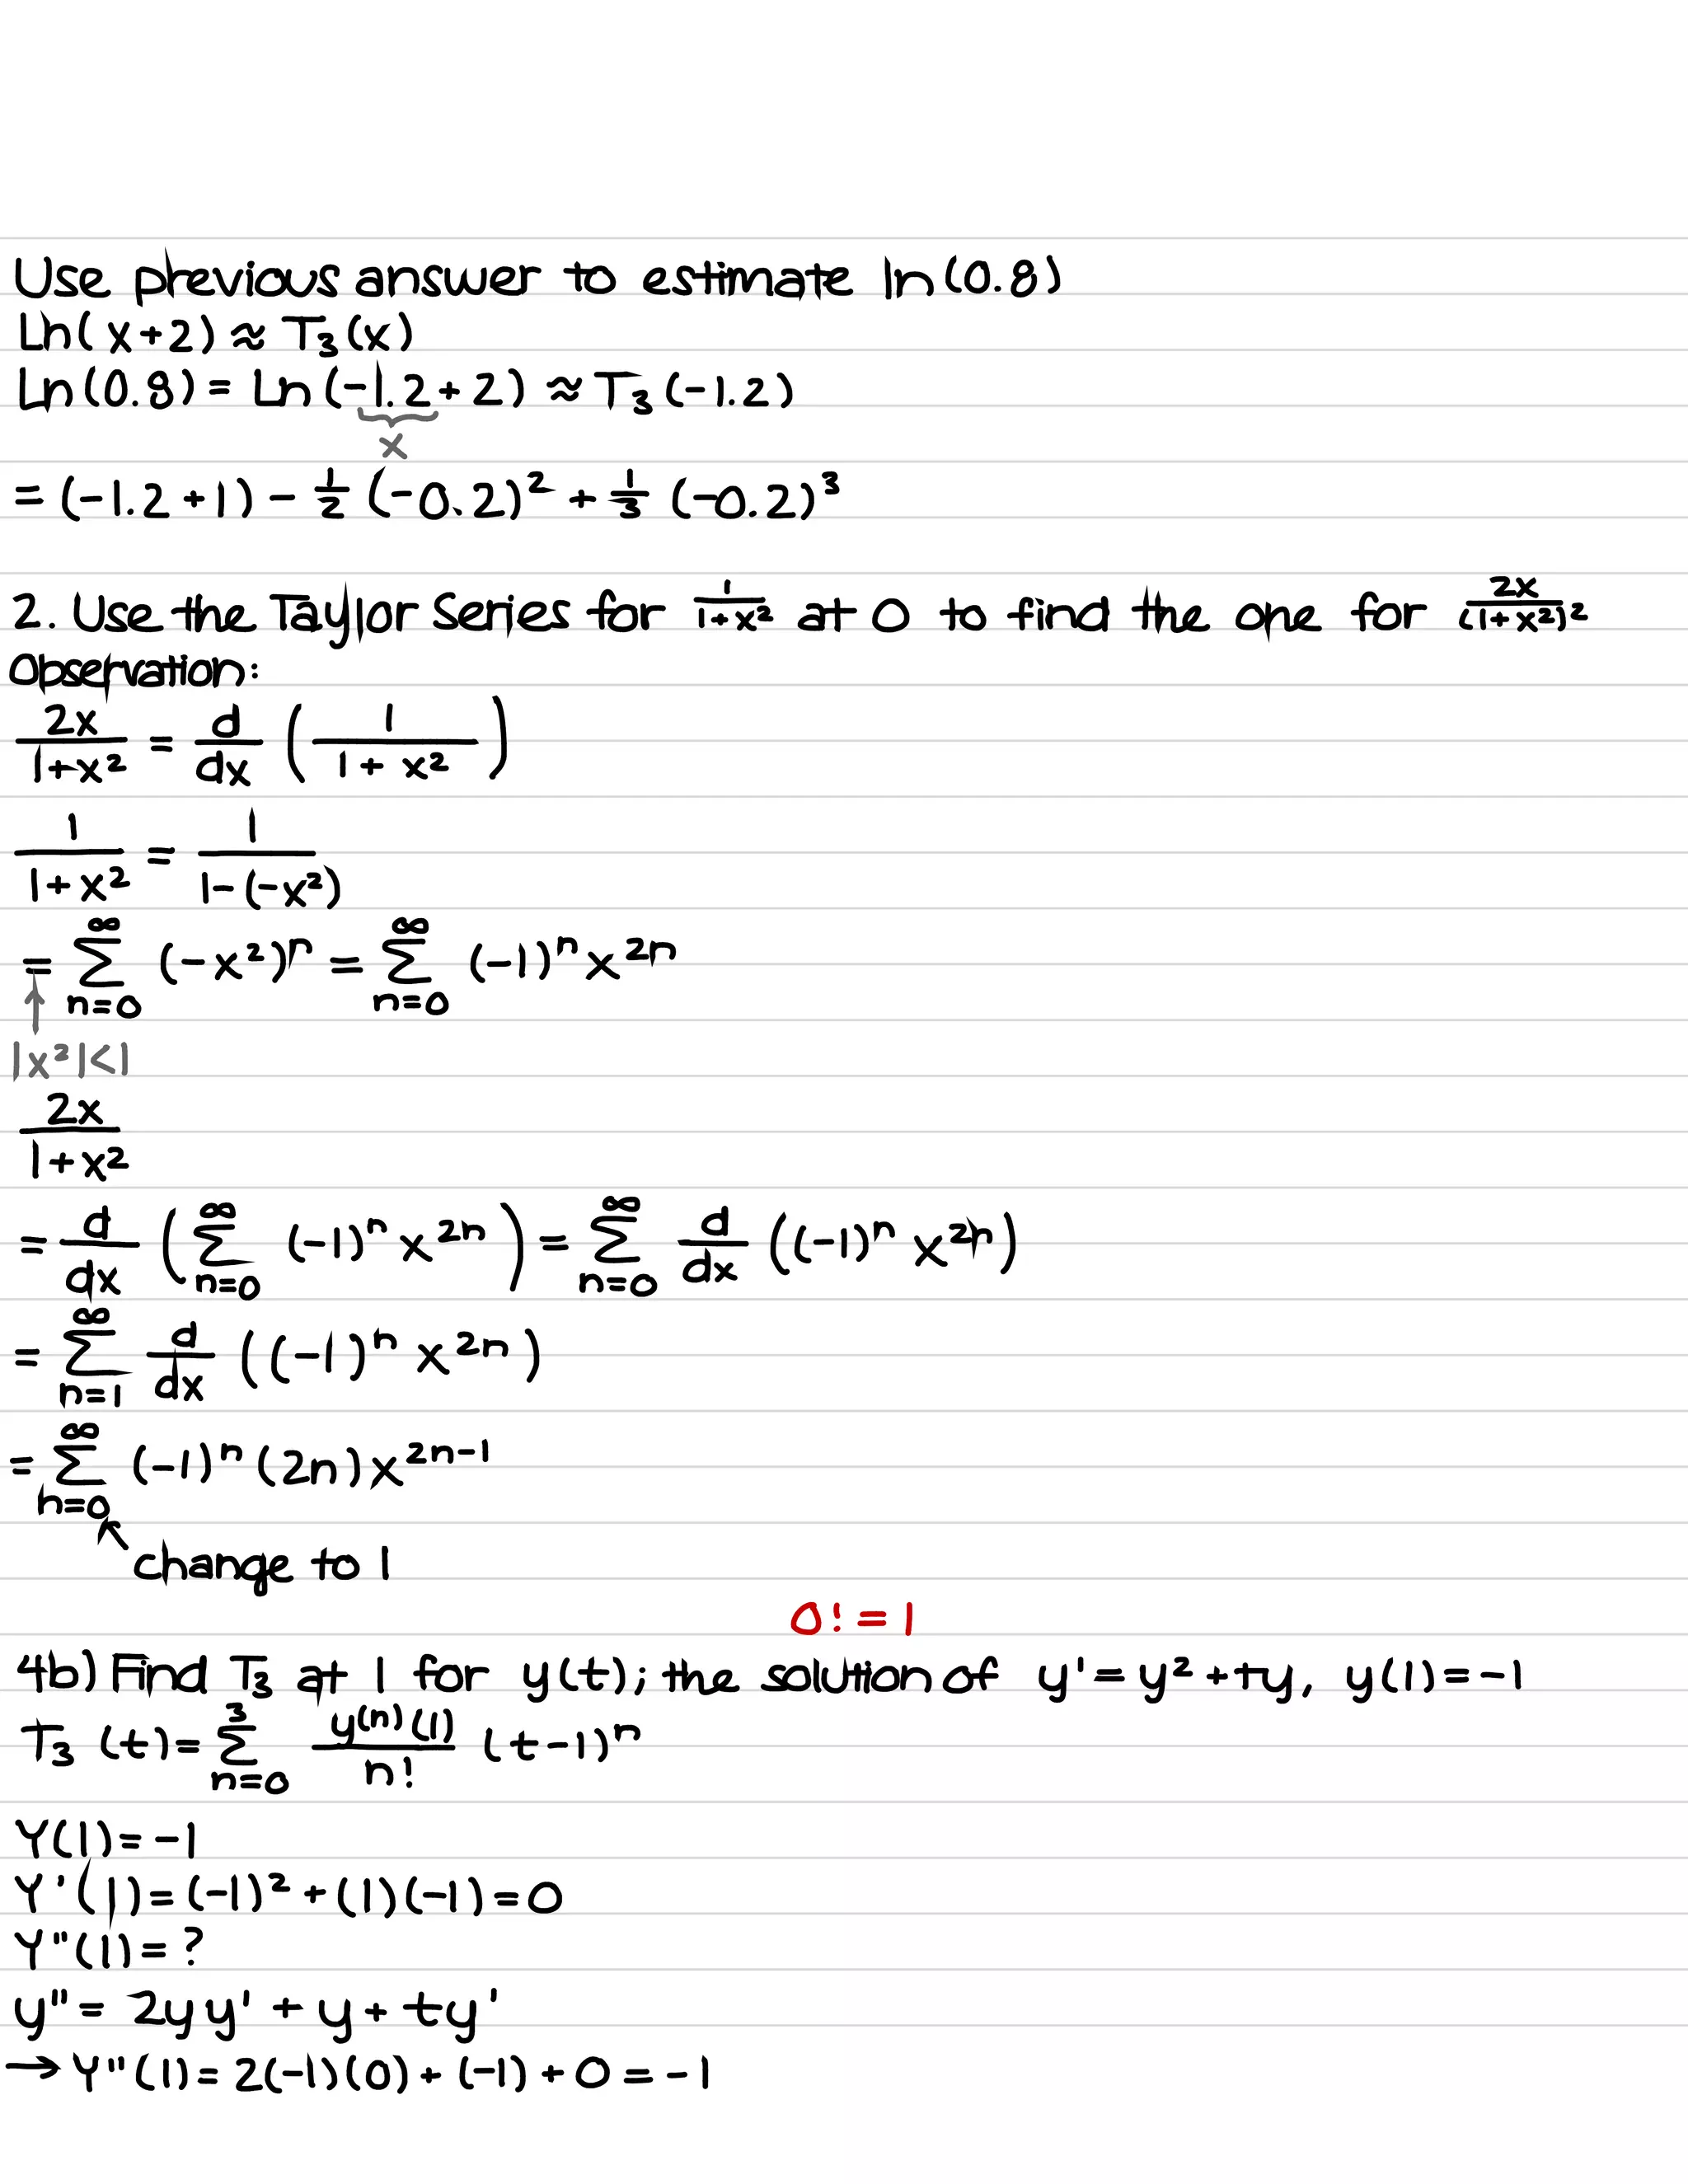 Use previous answer to estimate ln(0.8)
Ln(x+2) ≈ T₃(x)
Ln(0.8) = Ln(-1.2+2) ≈ T₃(-1.2)
x
= (-1.2+1) - 1/2 (-0.2)² + 1/3 (-0.2)³
2. Use the Taylor Series for 1/(1+x²) at 0 to find the one for 2x/(1+x²)²
Observation:
2x/(1+x²) = d/dx (1/(1+x²))
1/(1+x²) = 1/(1-(-x²))
= ∑_{n=0}^{∞} (-x²)ⁿ = ∑_{n=0}^{∞} (-1)ⁿ x²ⁿ
↑
|x²|<1
2x/(1+x²)
= d/dx (∑_{n=0}^{∞} (-1)ⁿ x²ⁿ) = ∑_{n=0}^{∞} d/dx ((-1)ⁿ x²ⁿ)
= ∑_{n=1}^{∞} d/dx ((-1)ⁿ x²ⁿ)
= ∑_{n=0}^{∞} (-1)ⁿ (2n) x²ⁿ⁻¹
↖ change to 1
0! = 1
4b) Find T₃ at 1 for y(t); the solution of y' = y² + ty, y(1) = -1
T₃(t) = ∑_{n=0}^{3} y⁽ⁿ⁾(1)/n! (t-1)ⁿ
Y(1) = -1
Y'(1) = (-1)² + (1)(-1) = 0
Y"(1) = ?
y" = 2yy' + y + ty'
→ Y"(1) = 2(-1)(0) + (-1) + 0 = -1